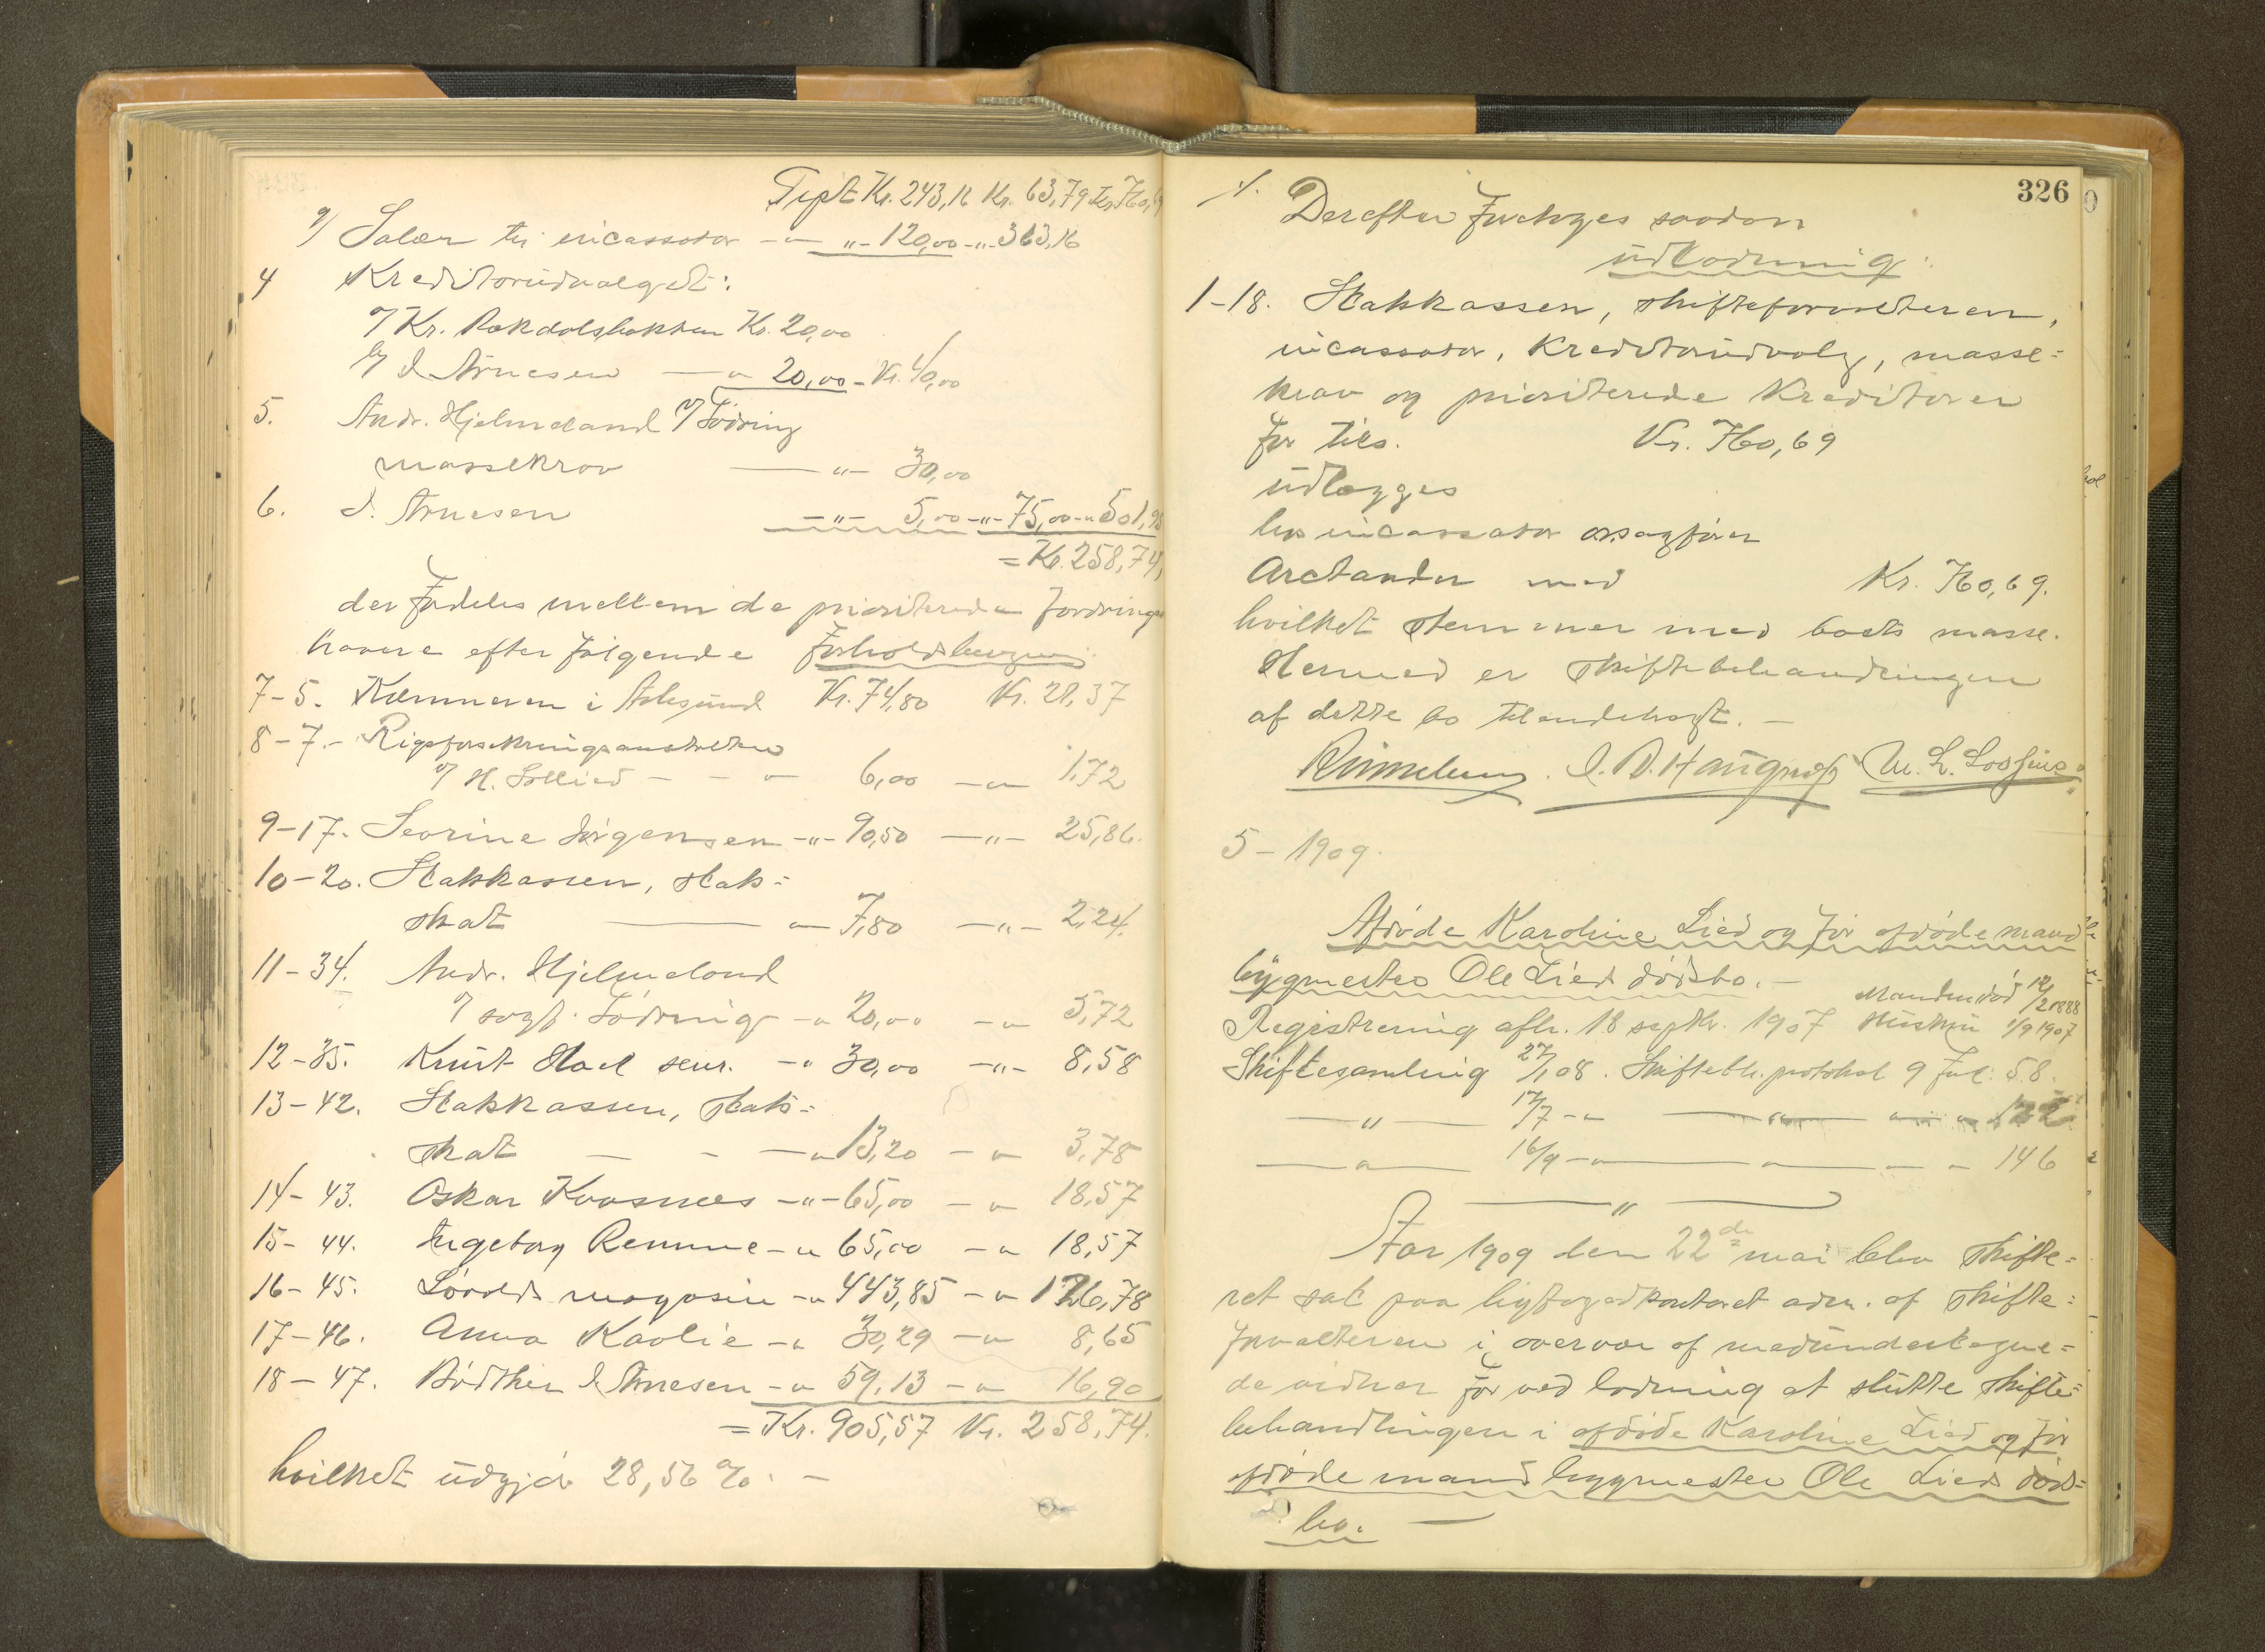 Tipt Kr. 243,16 Kr. 63,79 Kr. 760,69
g/ Salær til incassator - " - " - 120,00 - " - 363,16
4 Kreditorudvalget:
a/ Kr. Kr. 20,00
b/ I Arnesen — " 20,00 - Kr. 40,00
5. Andr. Hjelmeland
massekrav — " — 30,00
6. I. Arnesen — " — 5,00 - " - 75,00 - " 501,95
= Kr. 258,74,
der fordeles mellem de prioriterede fordrings
havere efter følgende forholdsberegning
7-5. Kæmneren i Aalesund Kr. 74,80 Kr. 21,37
8-7. - Rigsforsikringsanstalten
v/ H. Sollied - - " - 6,00 - " 1,72
9-17. Sevrine Jørgensen - " - 90,50 — " — 25,86.
10-20. Statskassen, stats=
skat — " 7,80 — " — 2,24.
11-34. Andr. Hjelmeland
v/ sagf. - " 20,00 - " 5,72
12-35. Knut Hoel senr. - " 30,00 - " - 8,58
13-42. Statskassen, stats=
skat - - - " 13,20 - " 3,78
14-43. Oskar Kvasnes - " - 65,00 - " 18,57
15-44. Ingeborg Remme - " 65,00 - " 18,57
16-45. Løvolds magasin - " 443,85 - " 126,78
17-46. Anna Kavlie - " 30,29 - " 8,65
18-47. Bødker I Arnesen - " 59,13 - " 16,90
= Kr. 905,57 Kr. 258,74.
hvilket udgjør 28,56 %. -
326
Derefter foretoges saadan
udlodning:
1-18. Statskassen, skifteforvalteren,
incassator, Kreditorudvalg, masse=
krav og prioriterede Kreditorer
for tils. Kr. 760,69
udlægges
hos incassator ovsagfører
Arctander med Kr. 760,69.
hvilket stemmer med boets masse.
Hermed er skiftebehandlingen
af dette bo tilendebragt. -
I. D. Haugnæs M. L. Lossius
5 - 1909.
Afdøde Karoline Lied og før afdøde mand
bygmester Ole Lieds dødsbo. -
Manden død 12/2 1888
Registrering afh. 18 septbr. 1907 Hustru 1/9 1907
Skiftesamling 27/1 08. Skiftebh. protokol 9 fol: 58.
— " — 17/7 - " — " — " - " 122
— " — 16/9 - " — " — - " 146
— " —
Aar 1909 den 22de mai blev skifte=
ret sat paa byfogedkontoret adm. af skifte=
forvalteren i overvær af medundertegne=
de vidner for ved lodning at slutte skifte=
behandlingen i afdøde Karoline Lied og før
afdøde mand bygmester Ole Lieds døds=
bo. —